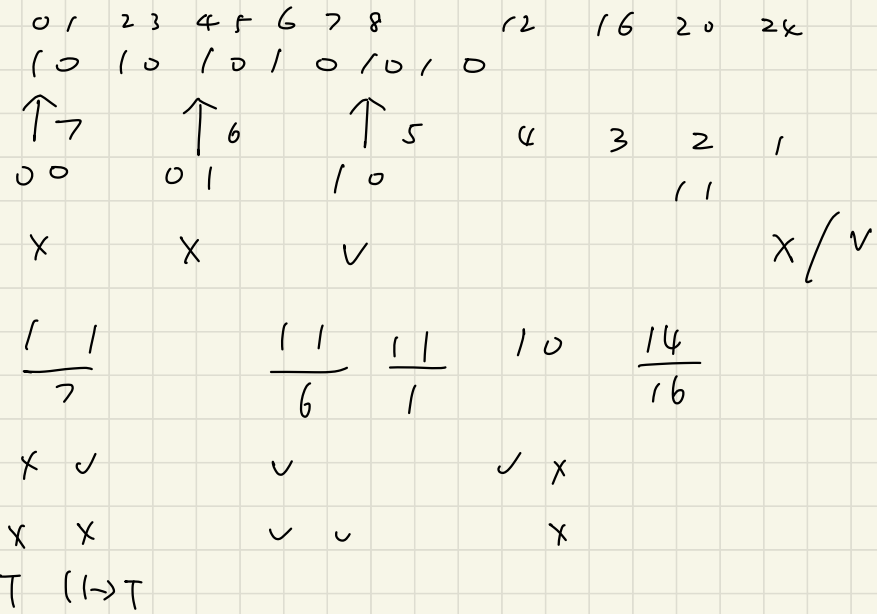 0 1 2 3 4 5 6 7 8 12 16 20 24
1 0 1 0 1 0 1 0 1 0 1 0
↑ 7 ↑ 6 ↑ 5 4 3 2 1
0 0 0 1 1 0 1 1
X X V X / V
1 1 1 1 1 1 1 0 14
7 6 1 16
X ✓ ✓ ✓ X
X X ✓ ✓ X
T (1→T